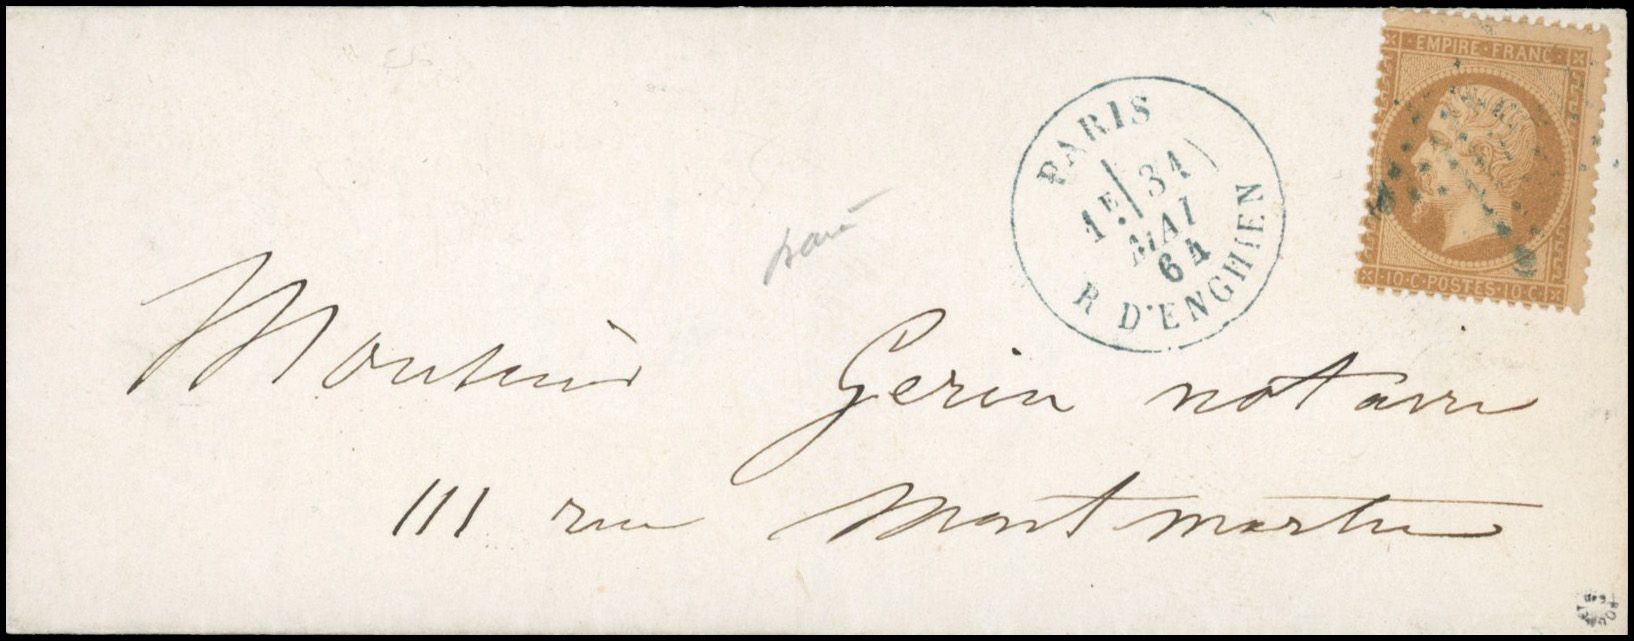 EMPIRE · FRANC ·
10 · C · POSTES · 10 · C ·
PARIS
1E 31
MAI
64
R D'ENGHIEN
Monsieur Gerin notaire
111 rue Montmartre